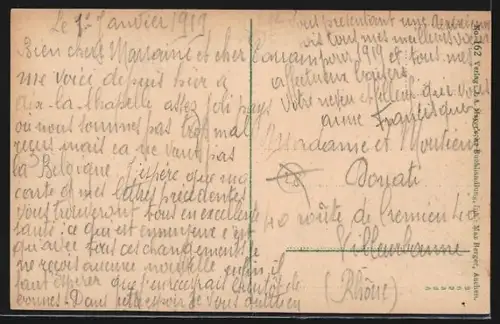 Le 1er Janvier 1919
Bien chère Marraine et cher Parrain
me voici depuis hier à
Aix-la-Chapelle assez joli pays
où nous sommes pas trop mal
reçus mais ca ne vaut pas
la Belgique. J'espère que ma
carte et mes lettres précédentes
vous trouveront tous en excellente
santé: ce qui est ennuyeux c'est
qu'avec tous ces changements je
ne reçois aucune nouvelle enfin il
faut espérer que j'en recevrai bientôt de
bonnes. Dans cet espoir je vous quitte en
vous présentant une
mes meilleurs
pour 1919 et tous mes
affectueux baisers
Votre neveu et filleul qui vous
aime Francisque
Madame et Monsieur
Donati
40 route de Crémieu 40
Villeurbanne
(Rhône)
No. 162 Verlag der Buchhandlung Max Berger, Aachen.